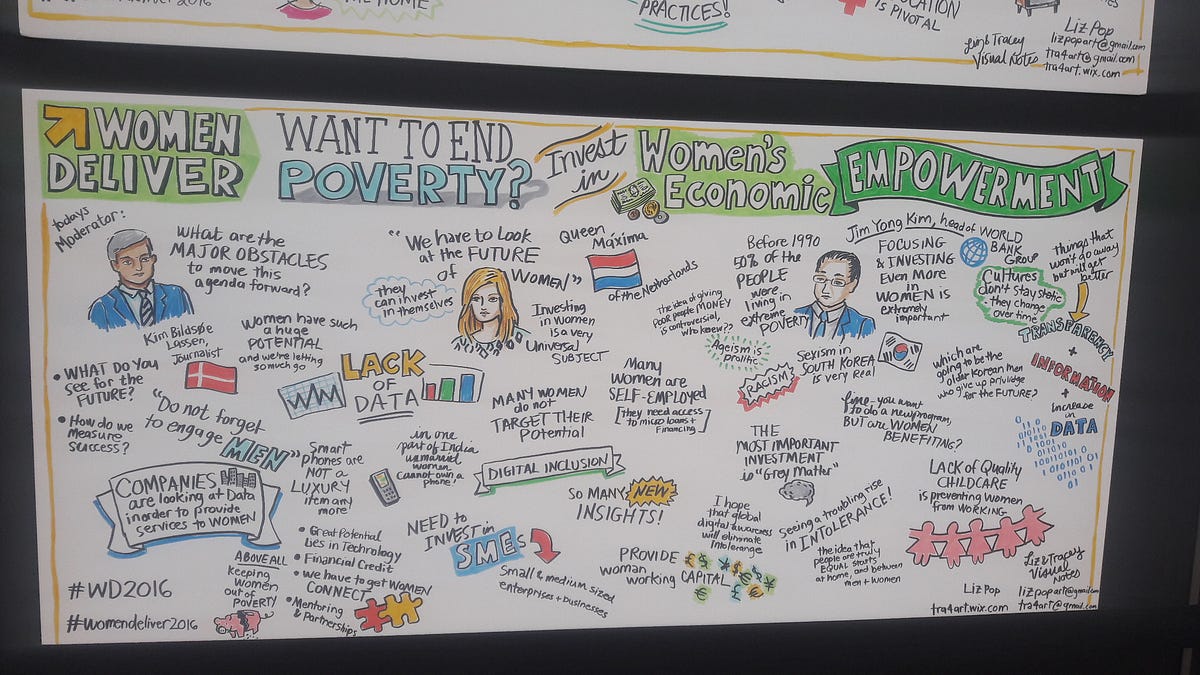 PRACTICES!
IS PIVOTAL
Liz Pop
lizpopart@gmail.com
tra4art@gmail.com
tra4art.wix.com
Liz & Tracey
Visual Notes
WOMEN
DELIVER
WANT TO END
POVERTY?
Invest
in
Women's
Economic
EMPOWERMENT
todays
Moderator:
WHAT ARE the
MAJOR OBSTACLES
to move this
agenda forward?
Kim Bildsøe
Lassen,
Journalist
• WHAT DO YOU
SEE for the
FUTURE?
• How do we
Measure
Success?
WOMEN have such
a huge
POTENTIAL
and we're letting
so much go
"Do not forget
to engage
MEN"
"We have to LOOK
at the FUTURE
of
WOMEN"
they
can invest
in themselves
Queen
Máxima
of the Netherlands
Investing
in women
is a very
Universal
SUBJECT
LACK
OF
DATA
MANY WOMEN
do not
TARGET THEIR
Potential
Many
Women are
SELF-EMPLOYED
[they need access
to micro loans +
Financing]
Before 1990
50% of the
PEOPLE
were
living in
extreme
POVERTY
the idea of giving
Poor people MONEY
is controversial,
who knew??
Ageism is
prolific
RACISM
Jim Yong Kim, head of WORLD
BANK
GROUP
FOCUSING
& INVESTING
Even More
in
WOMEN is
extremely
important
Cultures
don't stay static
- they change
over time
things that
won't go away
but will get
better
TRANSPARENCY
+
INFORMATION
+
Increase
in
DATA
Sexism in
SOUTH KOREA
is very Real
which are
going to be the
older Korean men
who give up privilege
for the FUTURE?
you want
to do a new program,
BUT are WOMEN
BENEFITING?
COMPANIES
are looking at Data
in order to provide
services to WOMEN
Smart
phones are
NOT a
LUXURY
item any
more!
in one
part of India
unmarried
women
cannot own a
phone!
DIGITAL INCLUSION
SO MANY NEW
INSIGHTS!
THE
MOST IMPORTANT
INVESTMENT
is "Grey Matter"
LACK of Quality
CHILDCARE
is preventing Women
from WORKING
I hope
that global
digital awareness
will eliminate
Intolerance
Seeing a troubling rise
in INTOLERANCE!
the idea that
people are truly
EQUAL starts
at home, and between
men + women
#WD2016
#womendeliver2016
ABOVE ALL
Keeping
women
out of
POVERTY
• Great Potential
lies in Technology
• Financial Credit
• we have to get WOMEN
CONNECT
• Mentoring
& Partnerships
NEED to
INVEST in
SMEs
Small & medium sized
enterprises + businesses
PROVIDE
woman
working
CAPITAL
Liz & Tracey
Visual
Notes
Liz Pop
lizpopart@gmail.com
tra4art.wix.com
tra4art@gmail.com